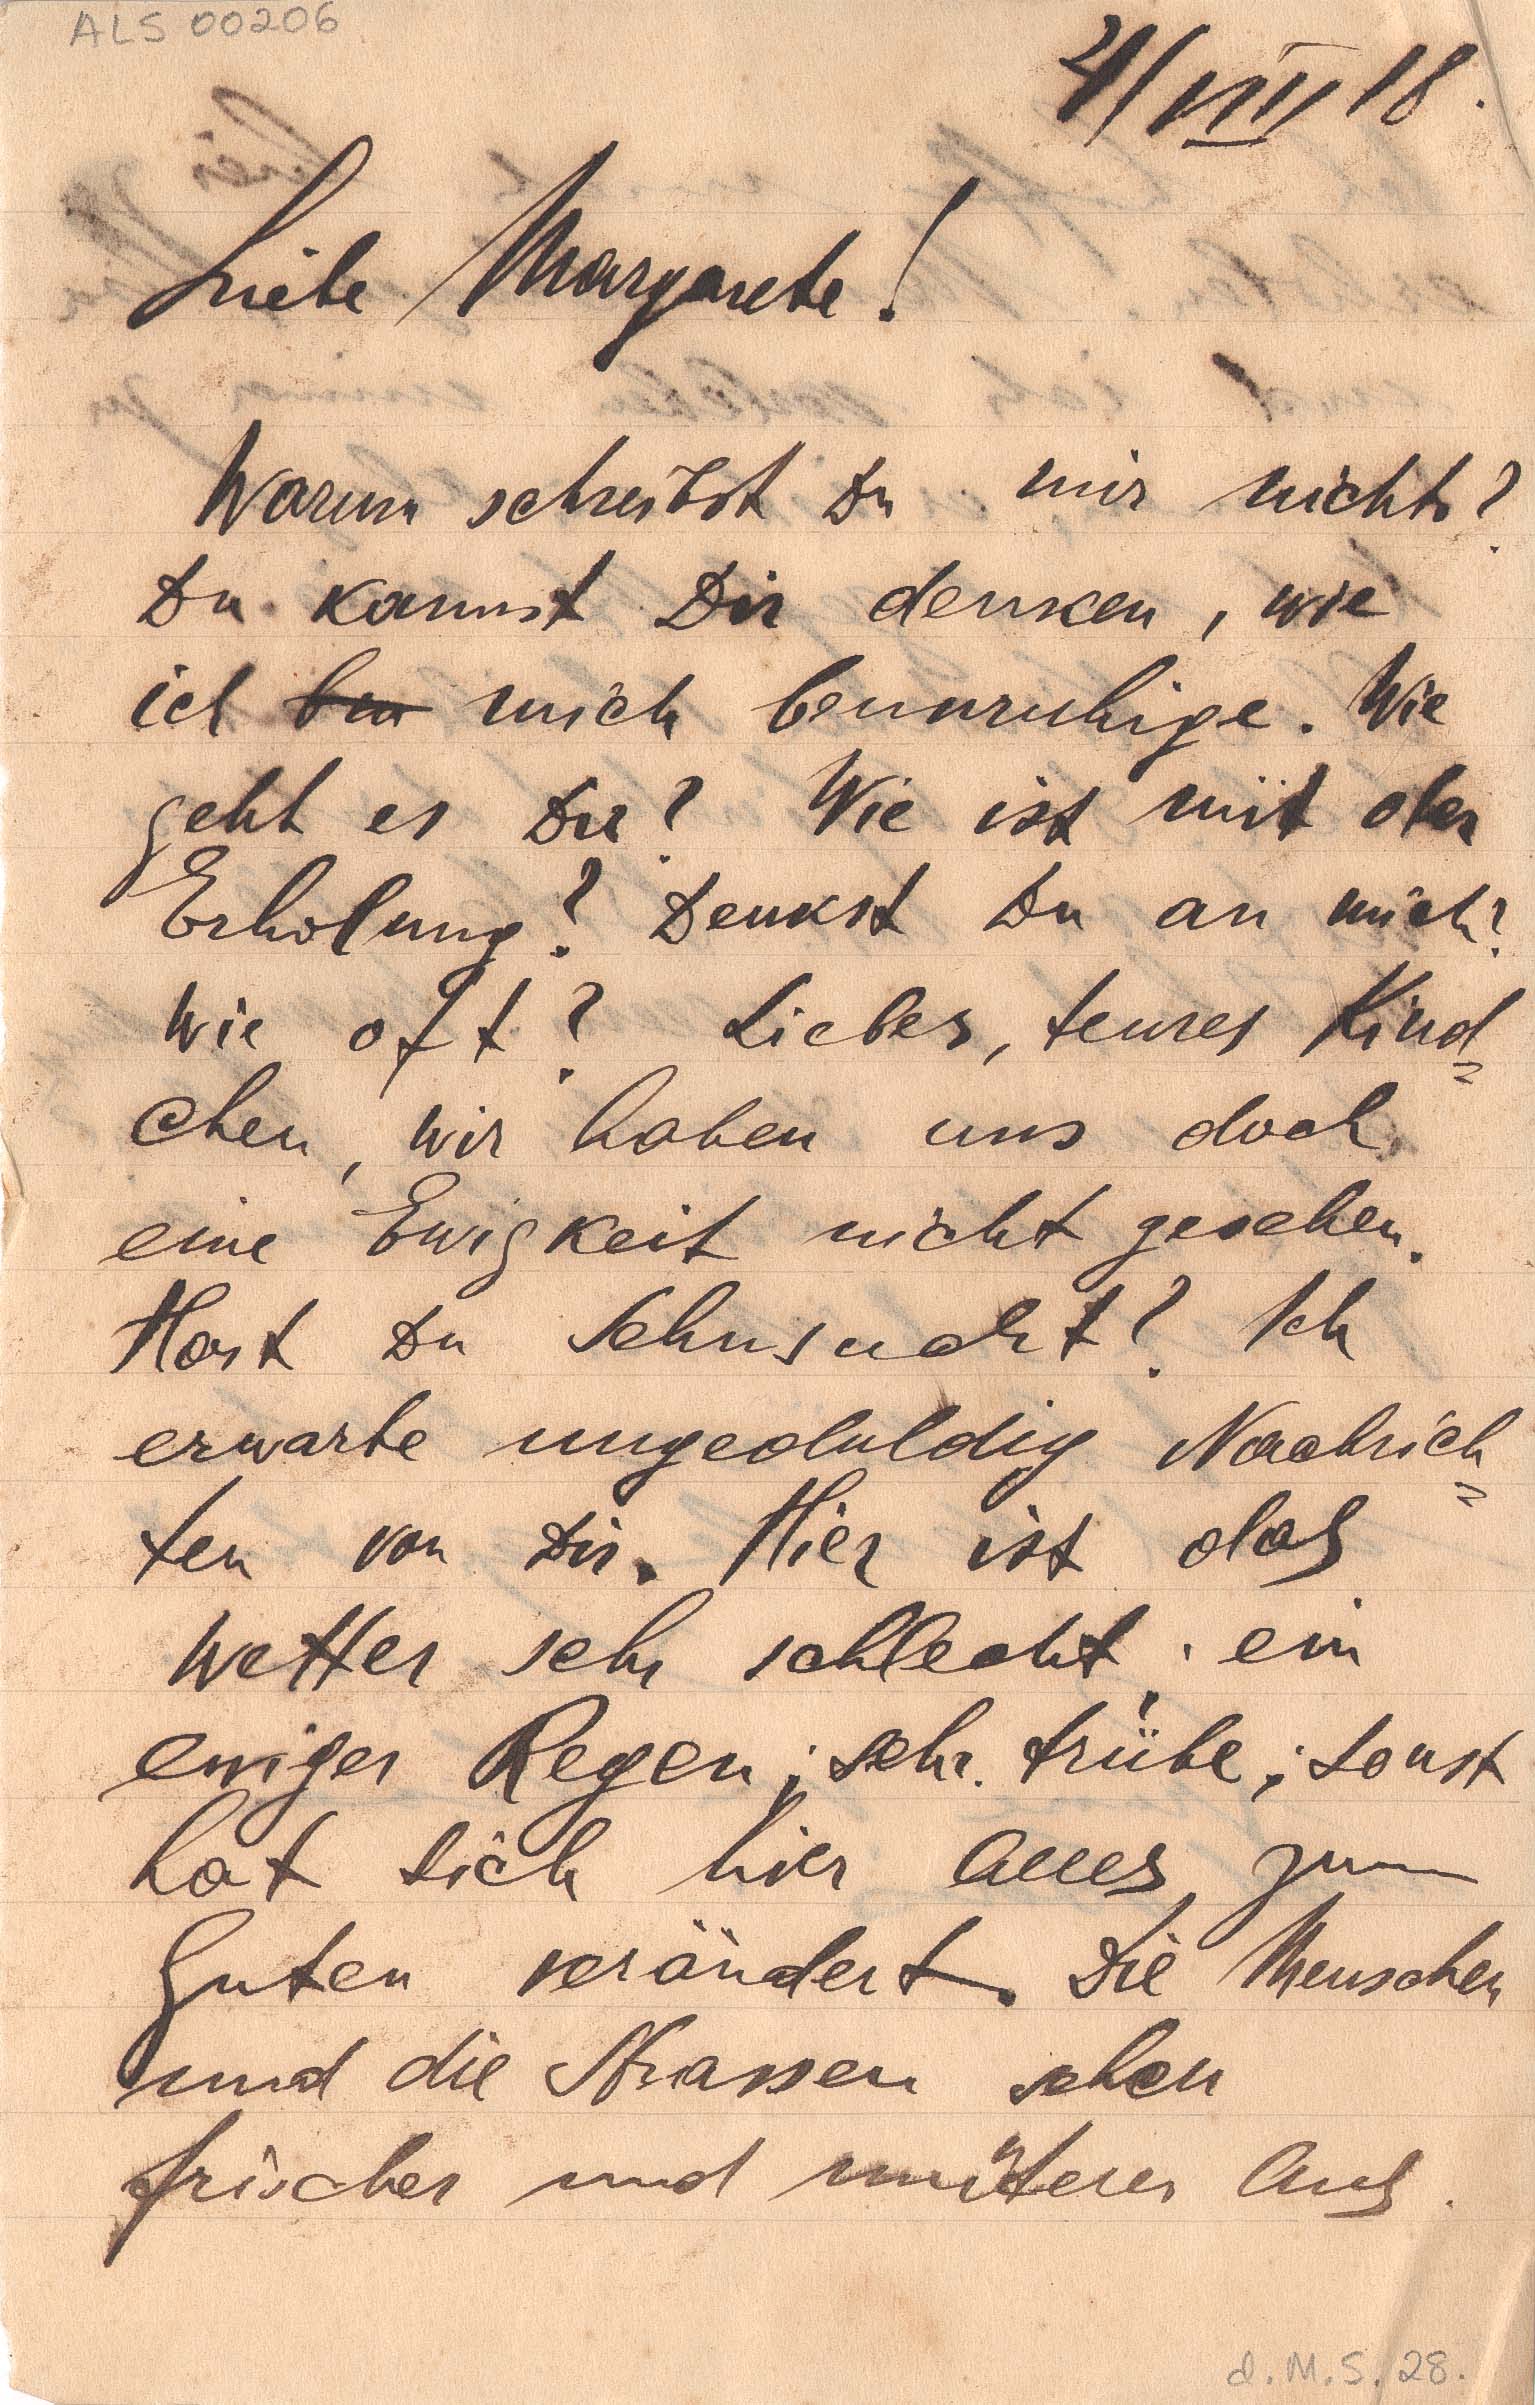 ALS 00206
21/VIII 18.
Liebe Margarete!
Warum schreibst Du mir nichts?
Du kannst Dir denken, wie
ich bin mich beunruhige. Wie
geht es Dir? Wie ist mit der
Erholung? Denkst Du an mich?
Wie oft? Liebes, teures Kind=
chen, wir haben uns doch
eine Ewigkeit nicht gesehen.
Hast Du Sehnsucht? Ich
erwarte ungeduldig Nachrich=
ten von Dir. Hier ist das
Wetter sehr schlecht, ein
ewiger Regen; sehr trübe; sonst
hat sich hier alles zum
Guten verändert. Die Menschen
und die Strassen sehen
frischer und munterer aus.
d.M.S.28.